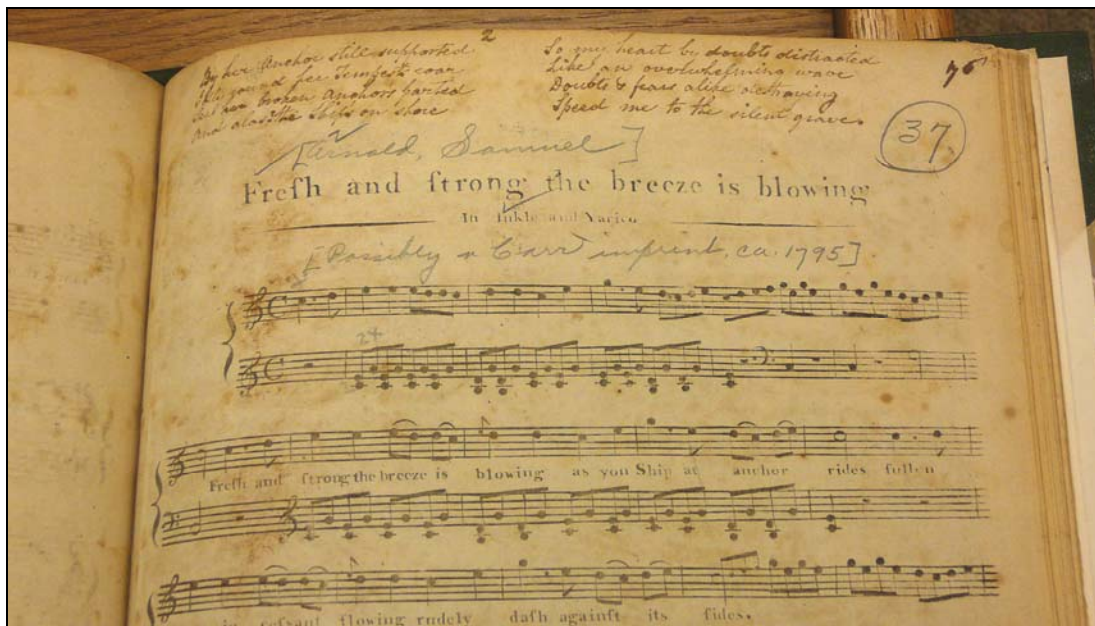 2
By her Anchor still supported
round her Tempests roar
broken anchors parted
And alas the Ship's on shore
So my heart by doubts distracted
Like an overwhelming wave
Doubts & fears alike destroying
Speed me to the silent grave
76
37
[Arnold, Samuel]
Freſh and ſtrong the breeze is blowing
In Inkle and Yarico
[Possibly a Carr imprint, ca. 1795]
24
Freſh and ſtrong the breeze is blowing as you Ship at anchor rides ſullen
in ceſsant flowing rudely daſh againſt its ſides.